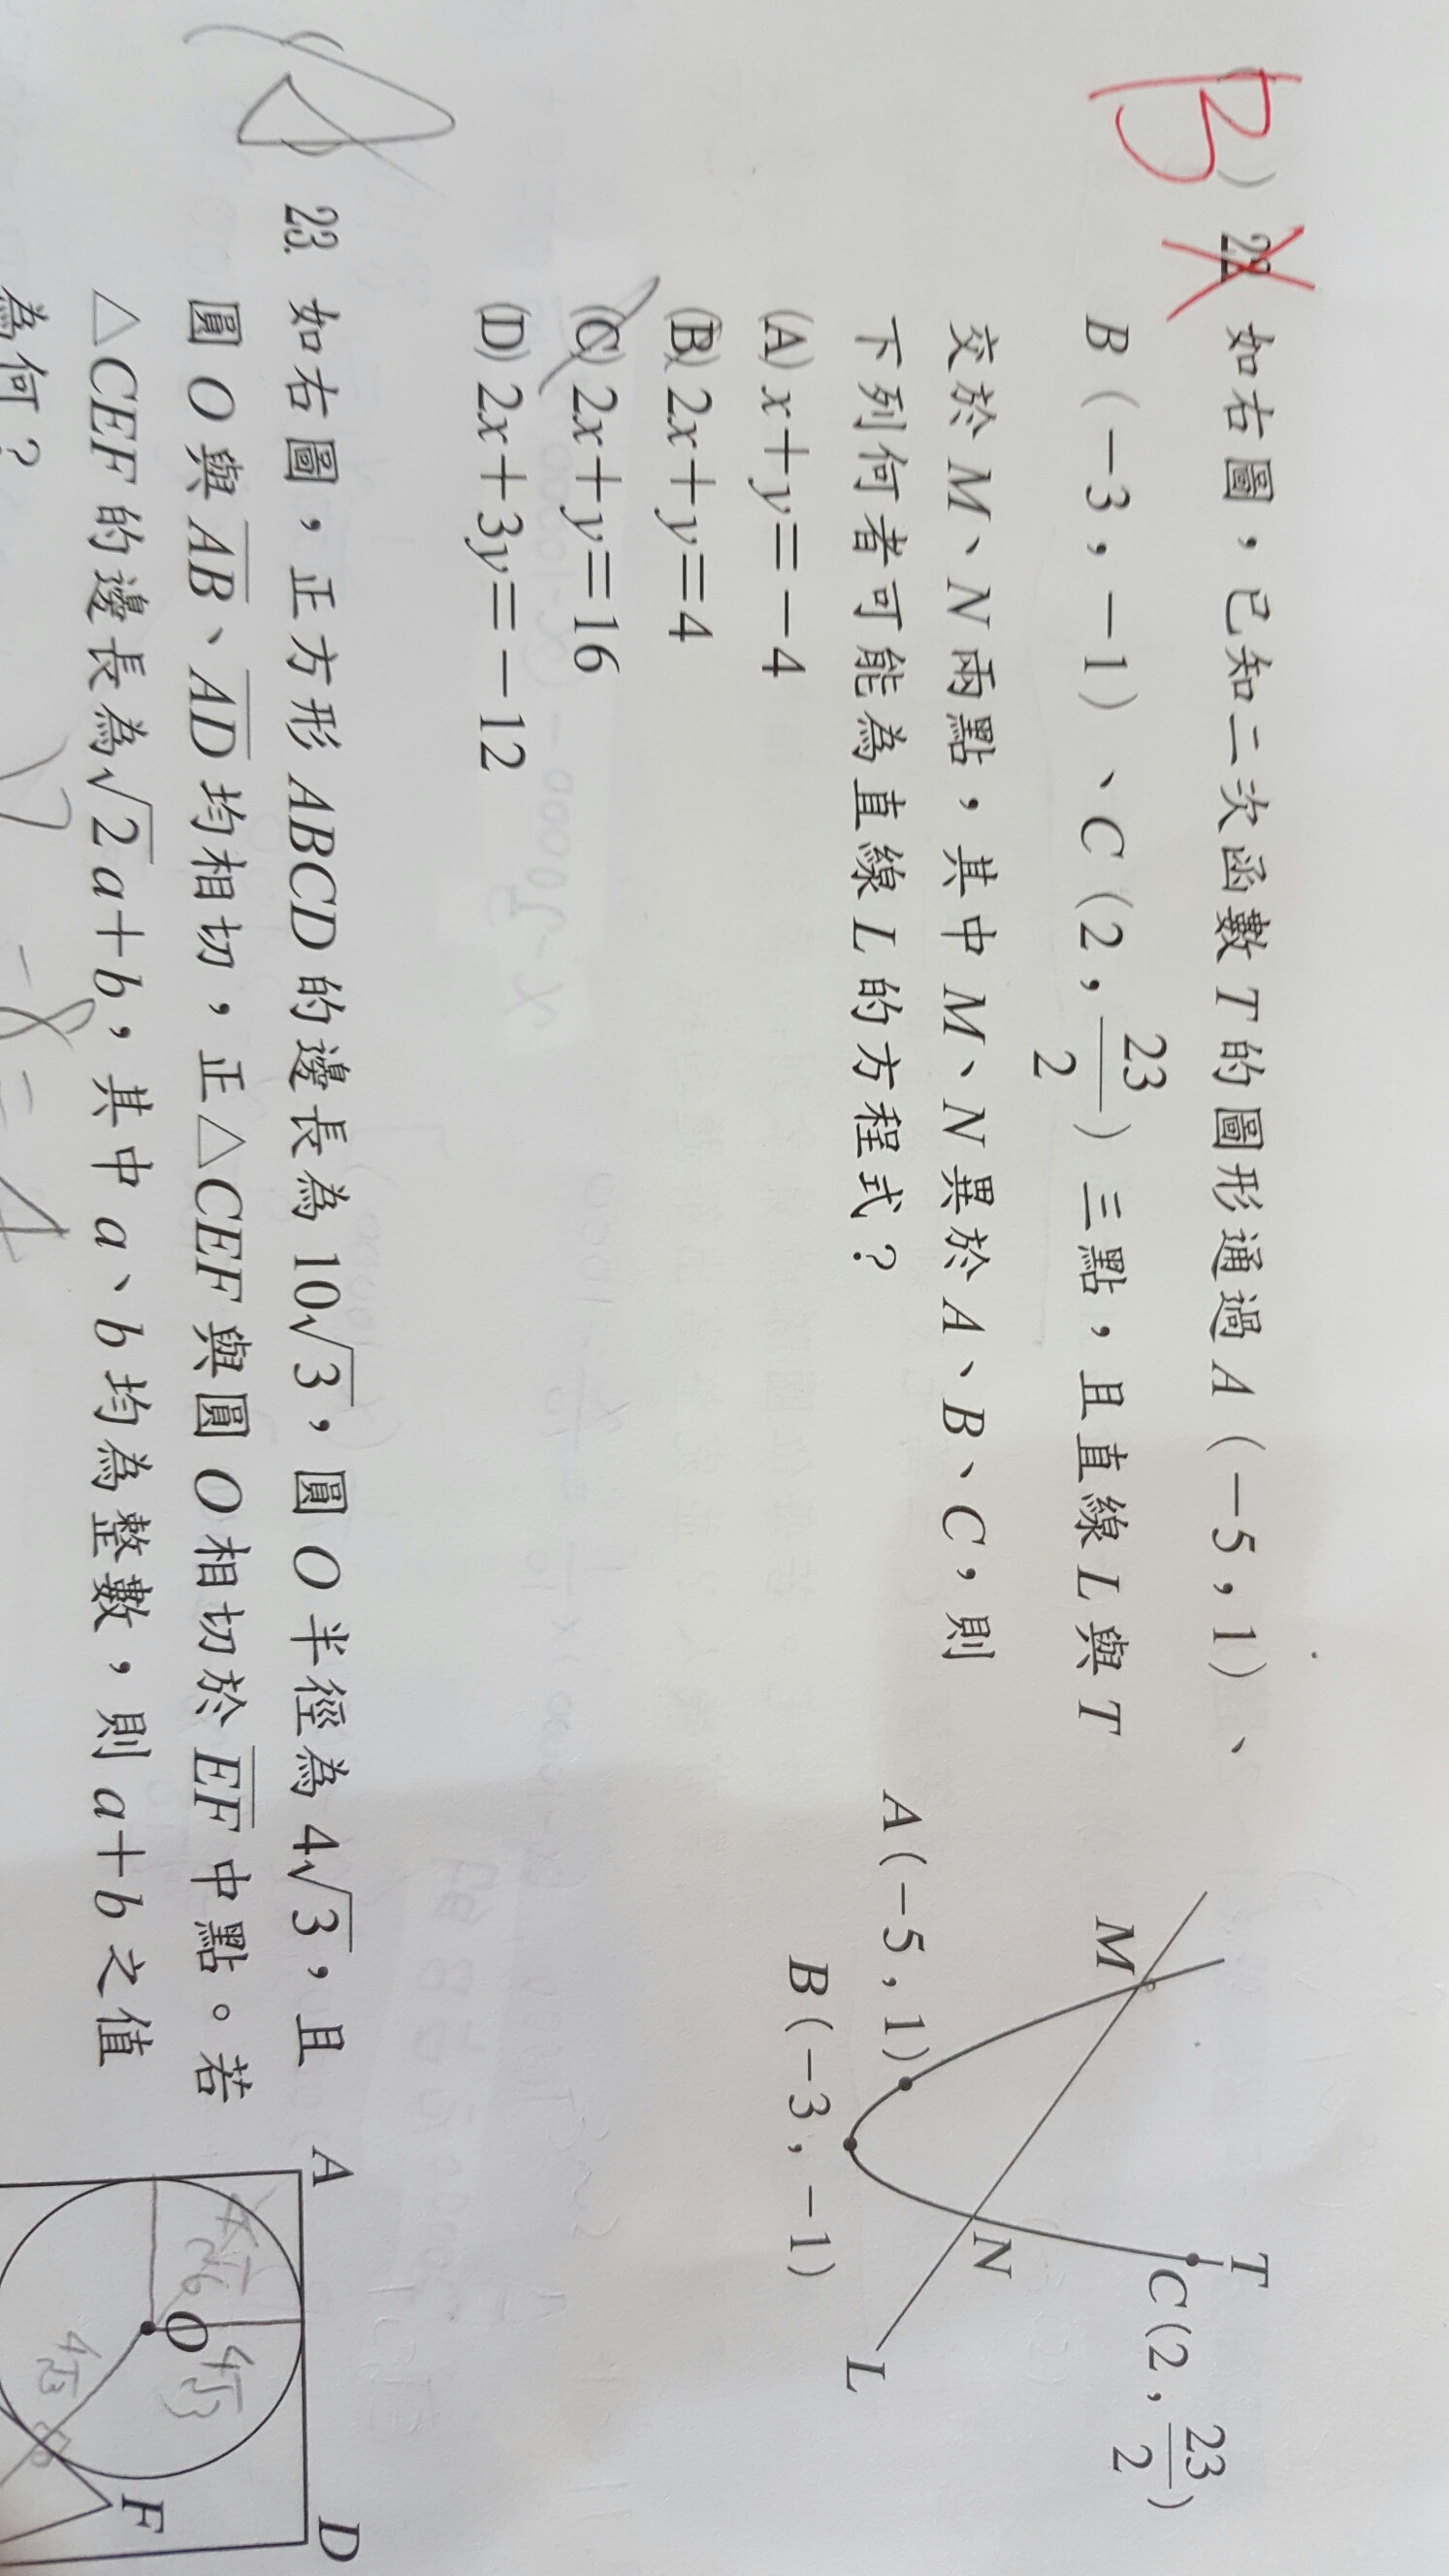 B ) 22. 如右圖，已知二次函數 T 的圖形通過 A（－5 , 1）、
B（－3 , －1）、C（2 , 23/2）三點，且直線 L 與 T
交於 M、N 兩點，其中 M、N 異於 A、B、C，則
下列何者可能為直線 L 的方程式？
(A) x＋y＝－4
(B) 2x＋y＝4
(C) 2x＋y＝16
(D) 2x＋3y＝－12
M
T
C（2 , 23/2）
A（－5 , 1）
N
B（－3 , －1）
L
23. 如右圖，正方形 ABCD 的邊長為 10√3，圓 O 半徑為 4√3，且
圓 O 與 AB、AD 均相切，正△CEF 與圓 O 相切於 EF 中點。若
△CEF 的邊長為√2 a＋b，其中 a、b 均為整數，則 a＋b 之值
為何？
A
D
4√6
4√3
O
4√3
F